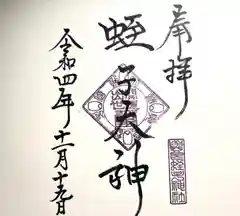 奉拝
蛭子大神
令和四年十二月十九日